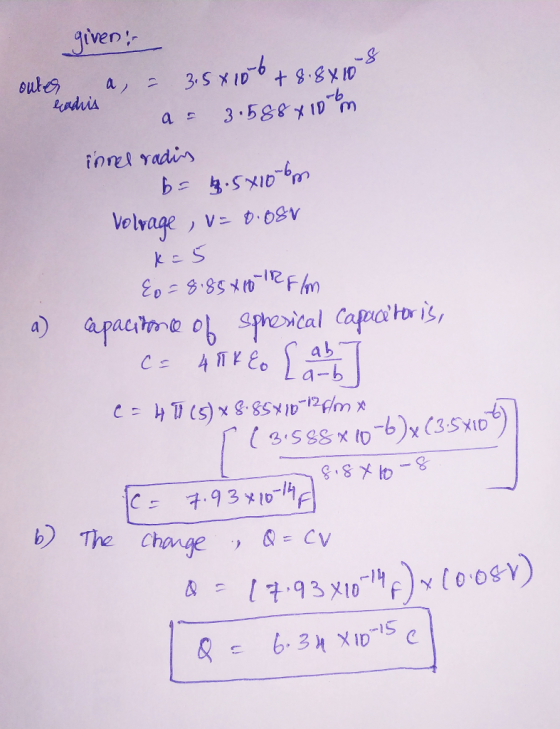 given:-
outer radius a, = 3.5 × 10^-6 + 8.8 × 10^-8
a = 3.588 × 10^-6 m
inner radius
b = 3.5 × 10^-6 m
Voltage, V = 0.08V
k = 5
ε₀ = 8.85 × 10^-12 F/m
a) Capacitance of spherical capacitor is,
C = 4πKε₀ [ab/(a-b)]
C = 4π(5) × 8.85 × 10^-12 F/m ×
[(3.588 × 10^-6) × (3.5 × 10^-6) / 8.8 × 10^-8]
C = 7.93 × 10^-14 F
b) The charge, Q = CV
Q = (7.93 × 10^-14 F) × (0.08V)
Q = 6.34 × 10^-15 C